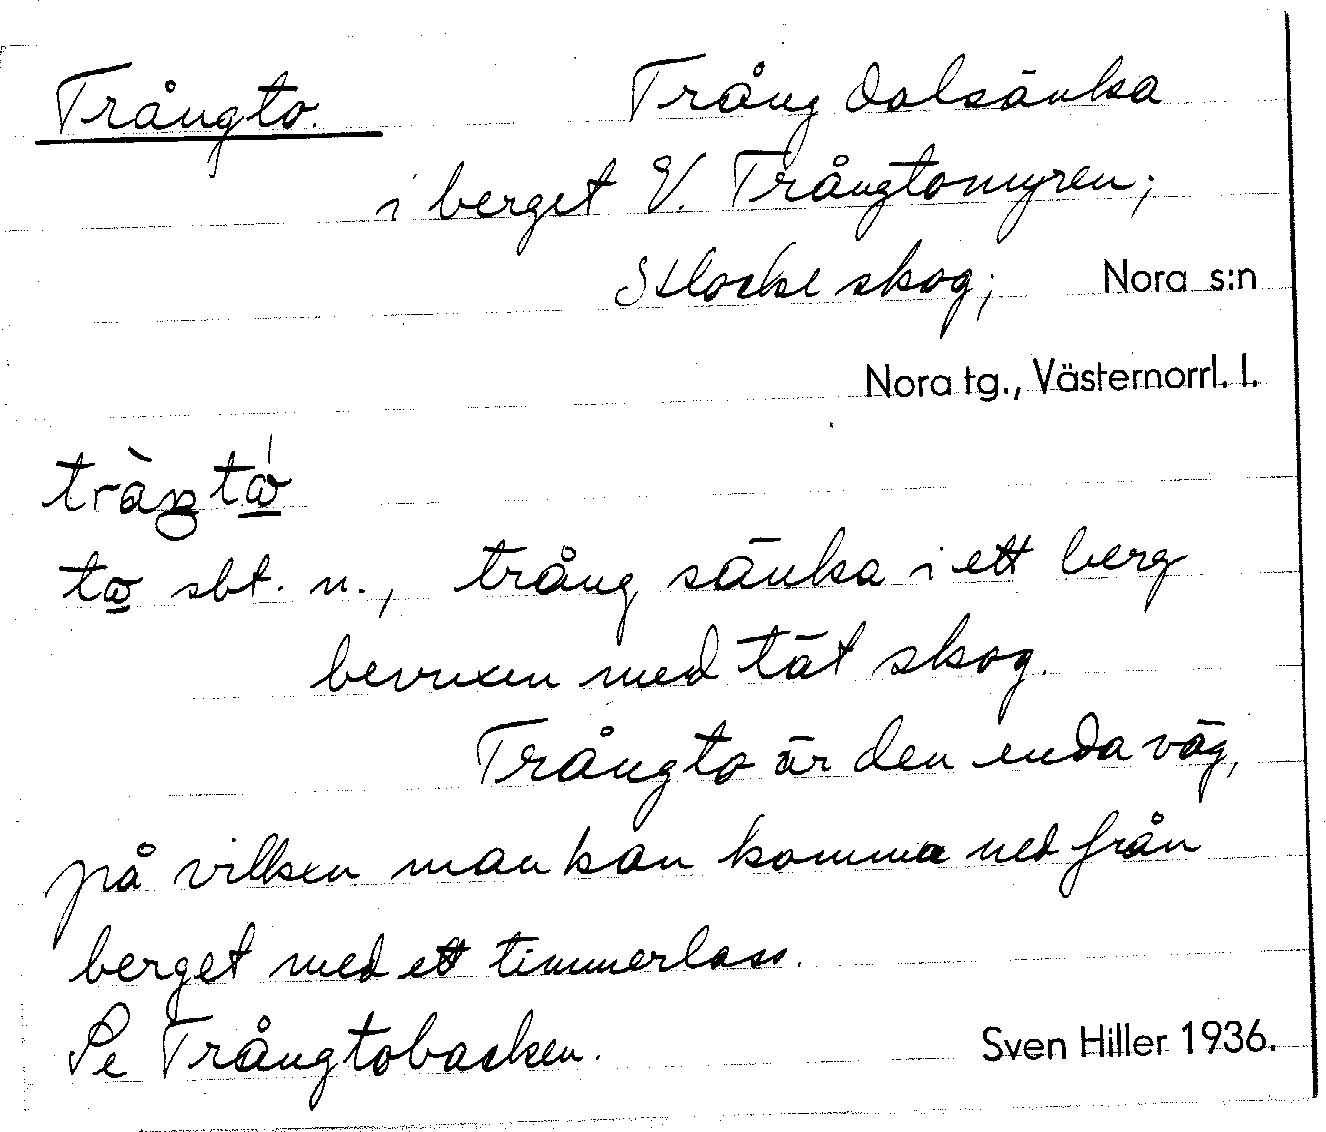 Trångto. Trång dalsänka
i berget V. Trångtomyren;
Stocke skog; Nora s:n
Nora tg., Västernorrl. l.
sbt. n., trång sänka i ett berg
bevuxen med tät skog.
Trångto är den enda väg,
på vilken man kan komma ned från
berget med ett timmerlass.
Se Trångtobacken. Sven Hiller 1936.